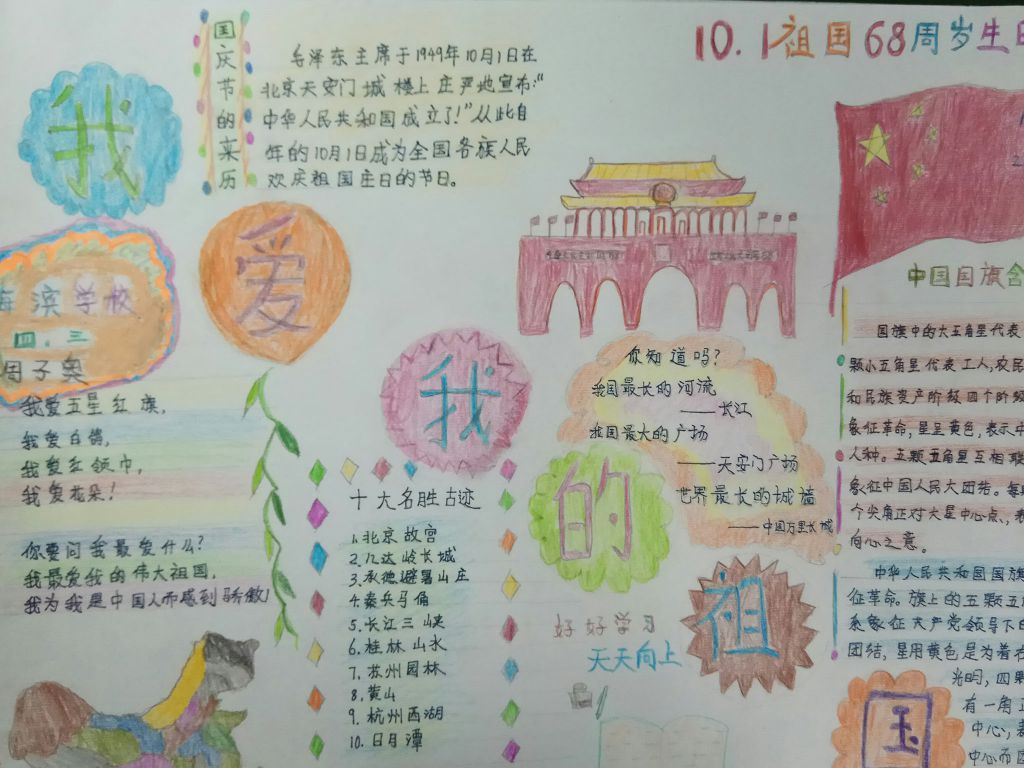 10.1祖国68周岁生日
国庆节的来历
毛泽东主席于1949年10月1日在
北京天安门城楼上庄严地宣布:“
中华人民共和国成立了!”从此每
年的10月1日成为全国各族人民
欢庆祖国庄日的节日。
我
爱
我
的
祖
国
海滨学校
四.三
周子奥
我爱五星红旗,
我爱白鸽,
我爱红领巾,
我爱花朵!
你要问我最爱什么?
我最爱我的伟大祖国,
我为我是中国人而感到骄傲!
十大名胜古迹
1.北京故宫
2.八达岭长城
3.承德避暑山庄
4.秦兵马俑
5.长江三峡
6.桂林山水
7.苏州园林
8.黄山
9.杭州西湖
10.日月潭
你知道吗?
我国最长的河流
——长江
我国最大的广场
——天安门广场
世界最长的城墙
——中国万里长城
好好学习
天天向上
中国国旗含
国旗中的大五角星代表
颗小五角星代表工人,农民
和民族资产阶级四个阶级
象征革命,星呈黄色,表示中
人种。五颗五角星互相联
象征中国人民大团结。每
个尖角正对大星中心点,表
向心之意。
中华人民共和国国旗
征革命。旗上的五颗五
系象征共产党领导下的
团结,星用黄色是为着在
光明,四颗
有一角正
中心,表
中心而团